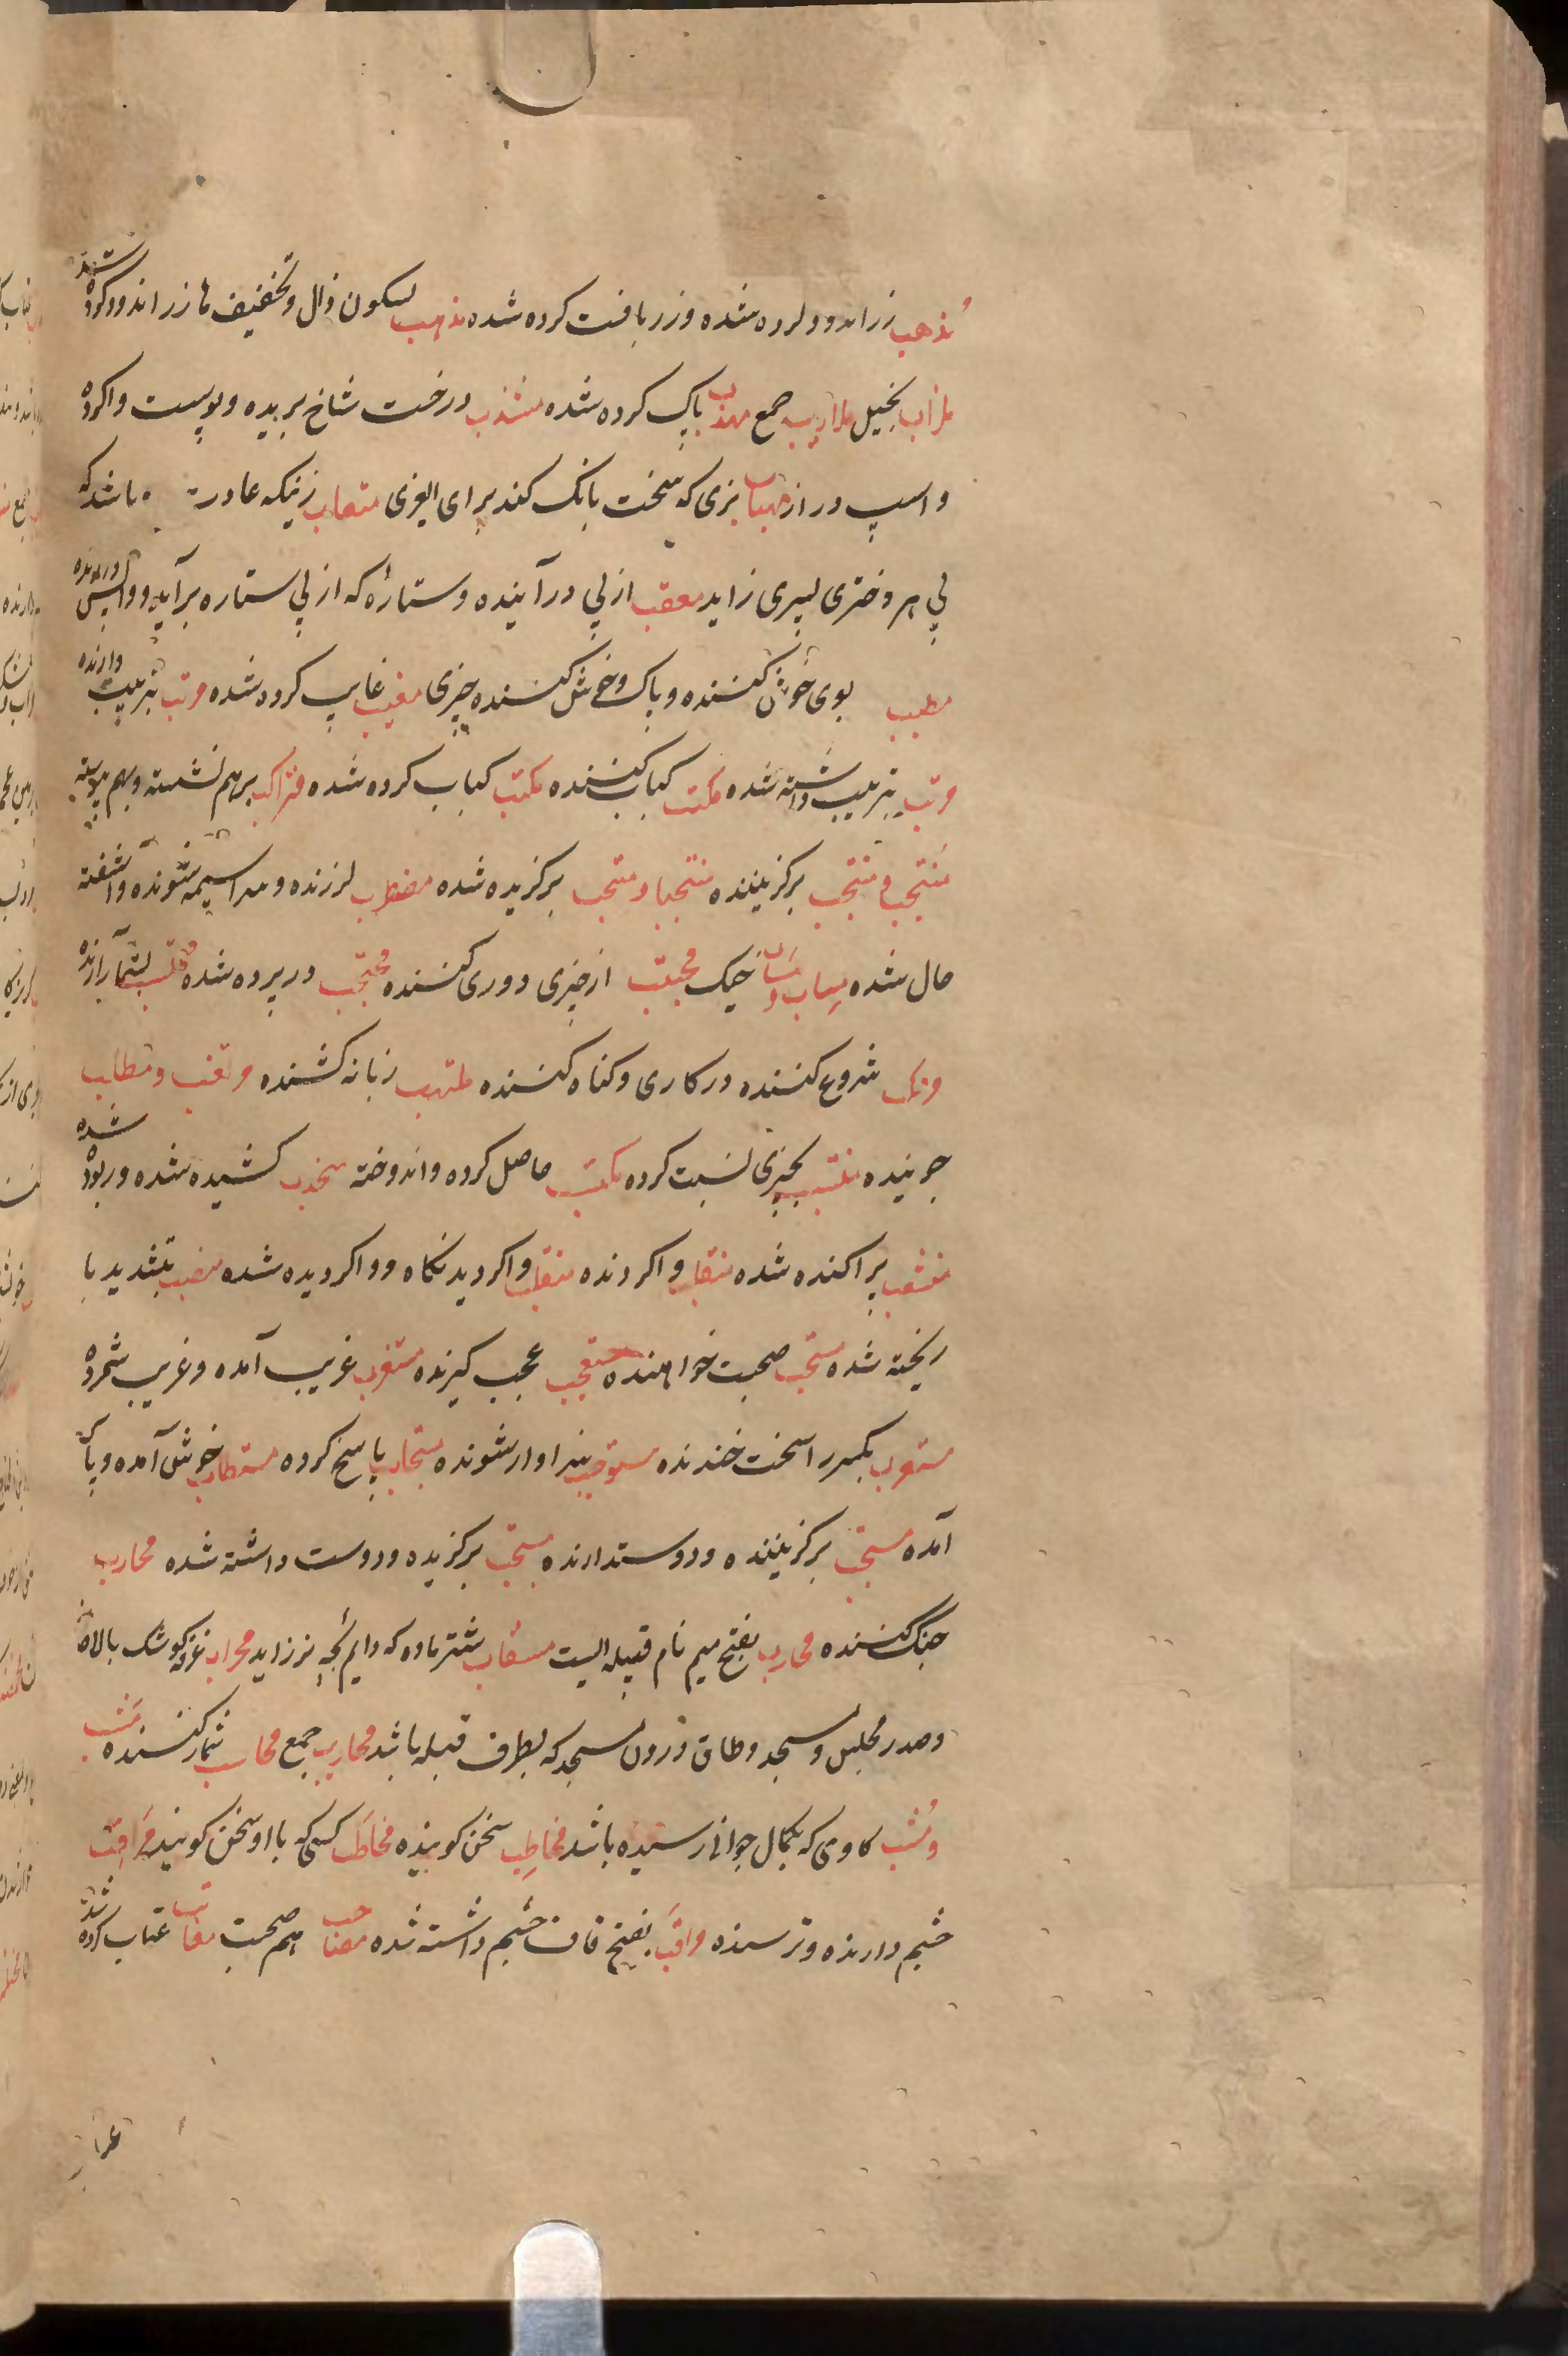 مُذهب زراندود کرده شده وزر بافت کرده شده مذهب بسکون ذال وتخفیف ها زر اندود کرده شده
ملزاب بخیل ملازیب جمع مهذب پاک کرده شده مشذب درخت شاخ بریده وپوست واکرده
واسپ دراز بزی که سخت بانک کند برای متعاب زنیکه عادت باشد که
پی هر دختری پسری زاید معقب از پی درآینده وستارهٔ که از پی ستاره برآید وواپس
مطیب بوی خوش کننده وپاک وخوش کننده چیزی مغیب غایب کرده شده مرتب بترتیب دارنده
مرتب بترتیب داشته شده مکتب کباب کننده مکتب کباب کرده شده متراکب برهم نشسته وبهم پیوسته
مُنتجب و منتخب برکزیننده منتجب و منتخب برکزیده شده مضطرب لرزنده وسراسیمه شونده وآشفته
حال شده خیک مجتنب از چیزی دوری کننده محتجب در پرده شده محتسب بشمار آرنده
مرتکب شروع کننده در کاری وکناه کننده ملتهب زبانه کشنده مرتقب و مطالب
جوینده منتسب بچیزی نسبت کرده مکتسب حاصل کرده واندوخته منجذب کشیده شده وربوده شده
منشعب پراکنده شده منقلب واکردنده منقلب واکردیدنکاه وواکردیده شده منصب بتشدید با
ریخته شده مستصحب صحبت خواهنده متعجب عجب کیرنده مستغرب غریب آمده وغریب شمرده
مستغرب بکسر را سخت خندنده مستوجب سزاوار شونده مستجاب پاسخ کرده مستطاب خوش آمده وپاک
آمده مستحب برکزیننده ودوستدارنده مستحب برکزیده ودوست داشته شده محارب
جنک کننده محارب بفتح میم نام قبیله ایست مسقاب شتر ماده که دایم بچهٔ نر زاید محراب غرفه کوشک بالاخانه
وصدر مجلس ومسجد وطاق درون مسجد که بطرف قبله باشد محاریب جمع محاسب شمار کننده مَشب
ومُشب کاوی که بکمال جوانی رسیده باشد مخاطِب سخن کوینده مخاطَب کسی که با او سخن کویند مراقب
چشم دارنده وترسنده مراقَب بفتح قاف چشم داشته شده مصاحب هم صحبت معاتب عتاب کرده شده